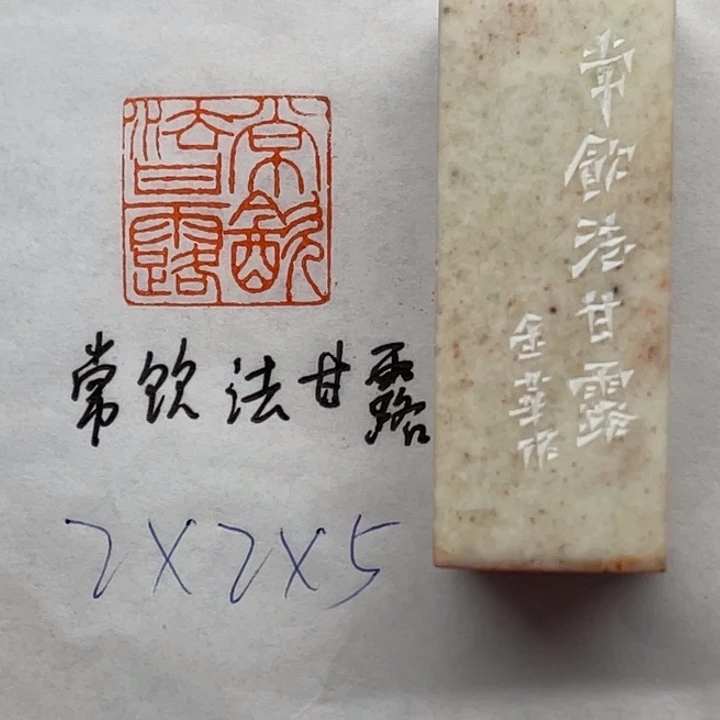 常飲
法甘露
常饮法甘露
2×2×5
常飲法甘露
金華作